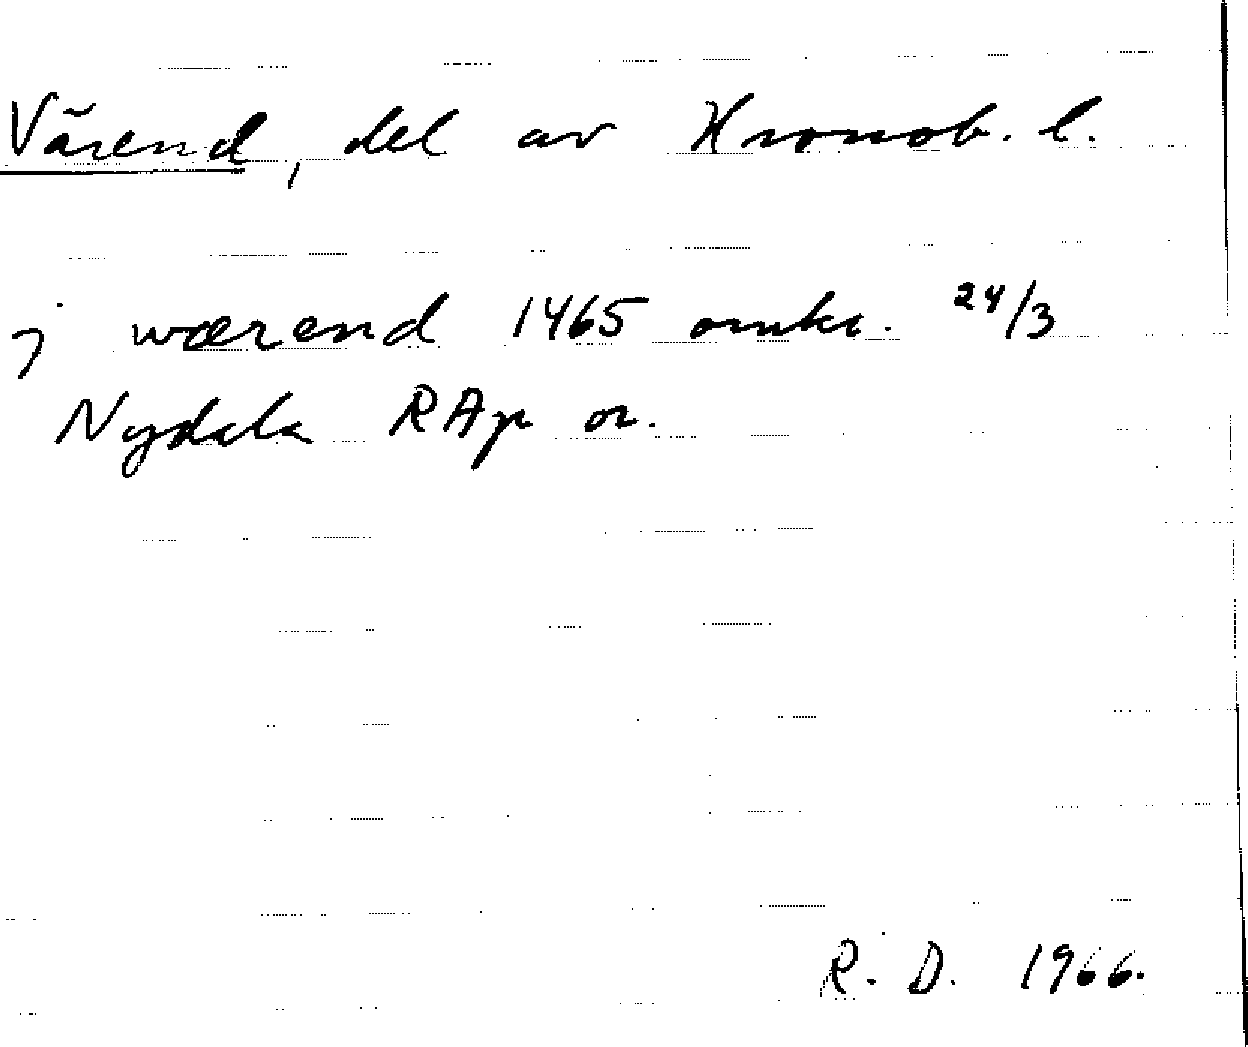 Värend, del av Kronob. l.
j wærend 1465 omkr. 24/3
Nydala RAp or.
R. D. 1966.